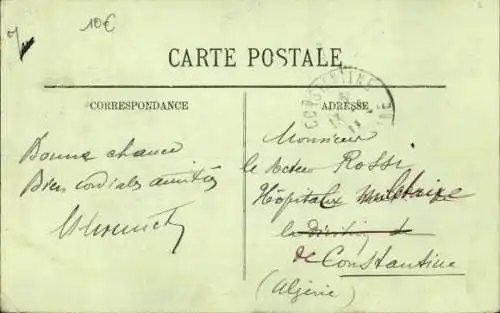 10€
CARTE POSTALE
CONSTANTINE
CORRESPONDANCE
ADRESSE
Bonne chance
Bien cordiales amitiés
Monsieur
le docteur Rossi
Hôpital militaire
la division de
de Constantine
(Algérie)